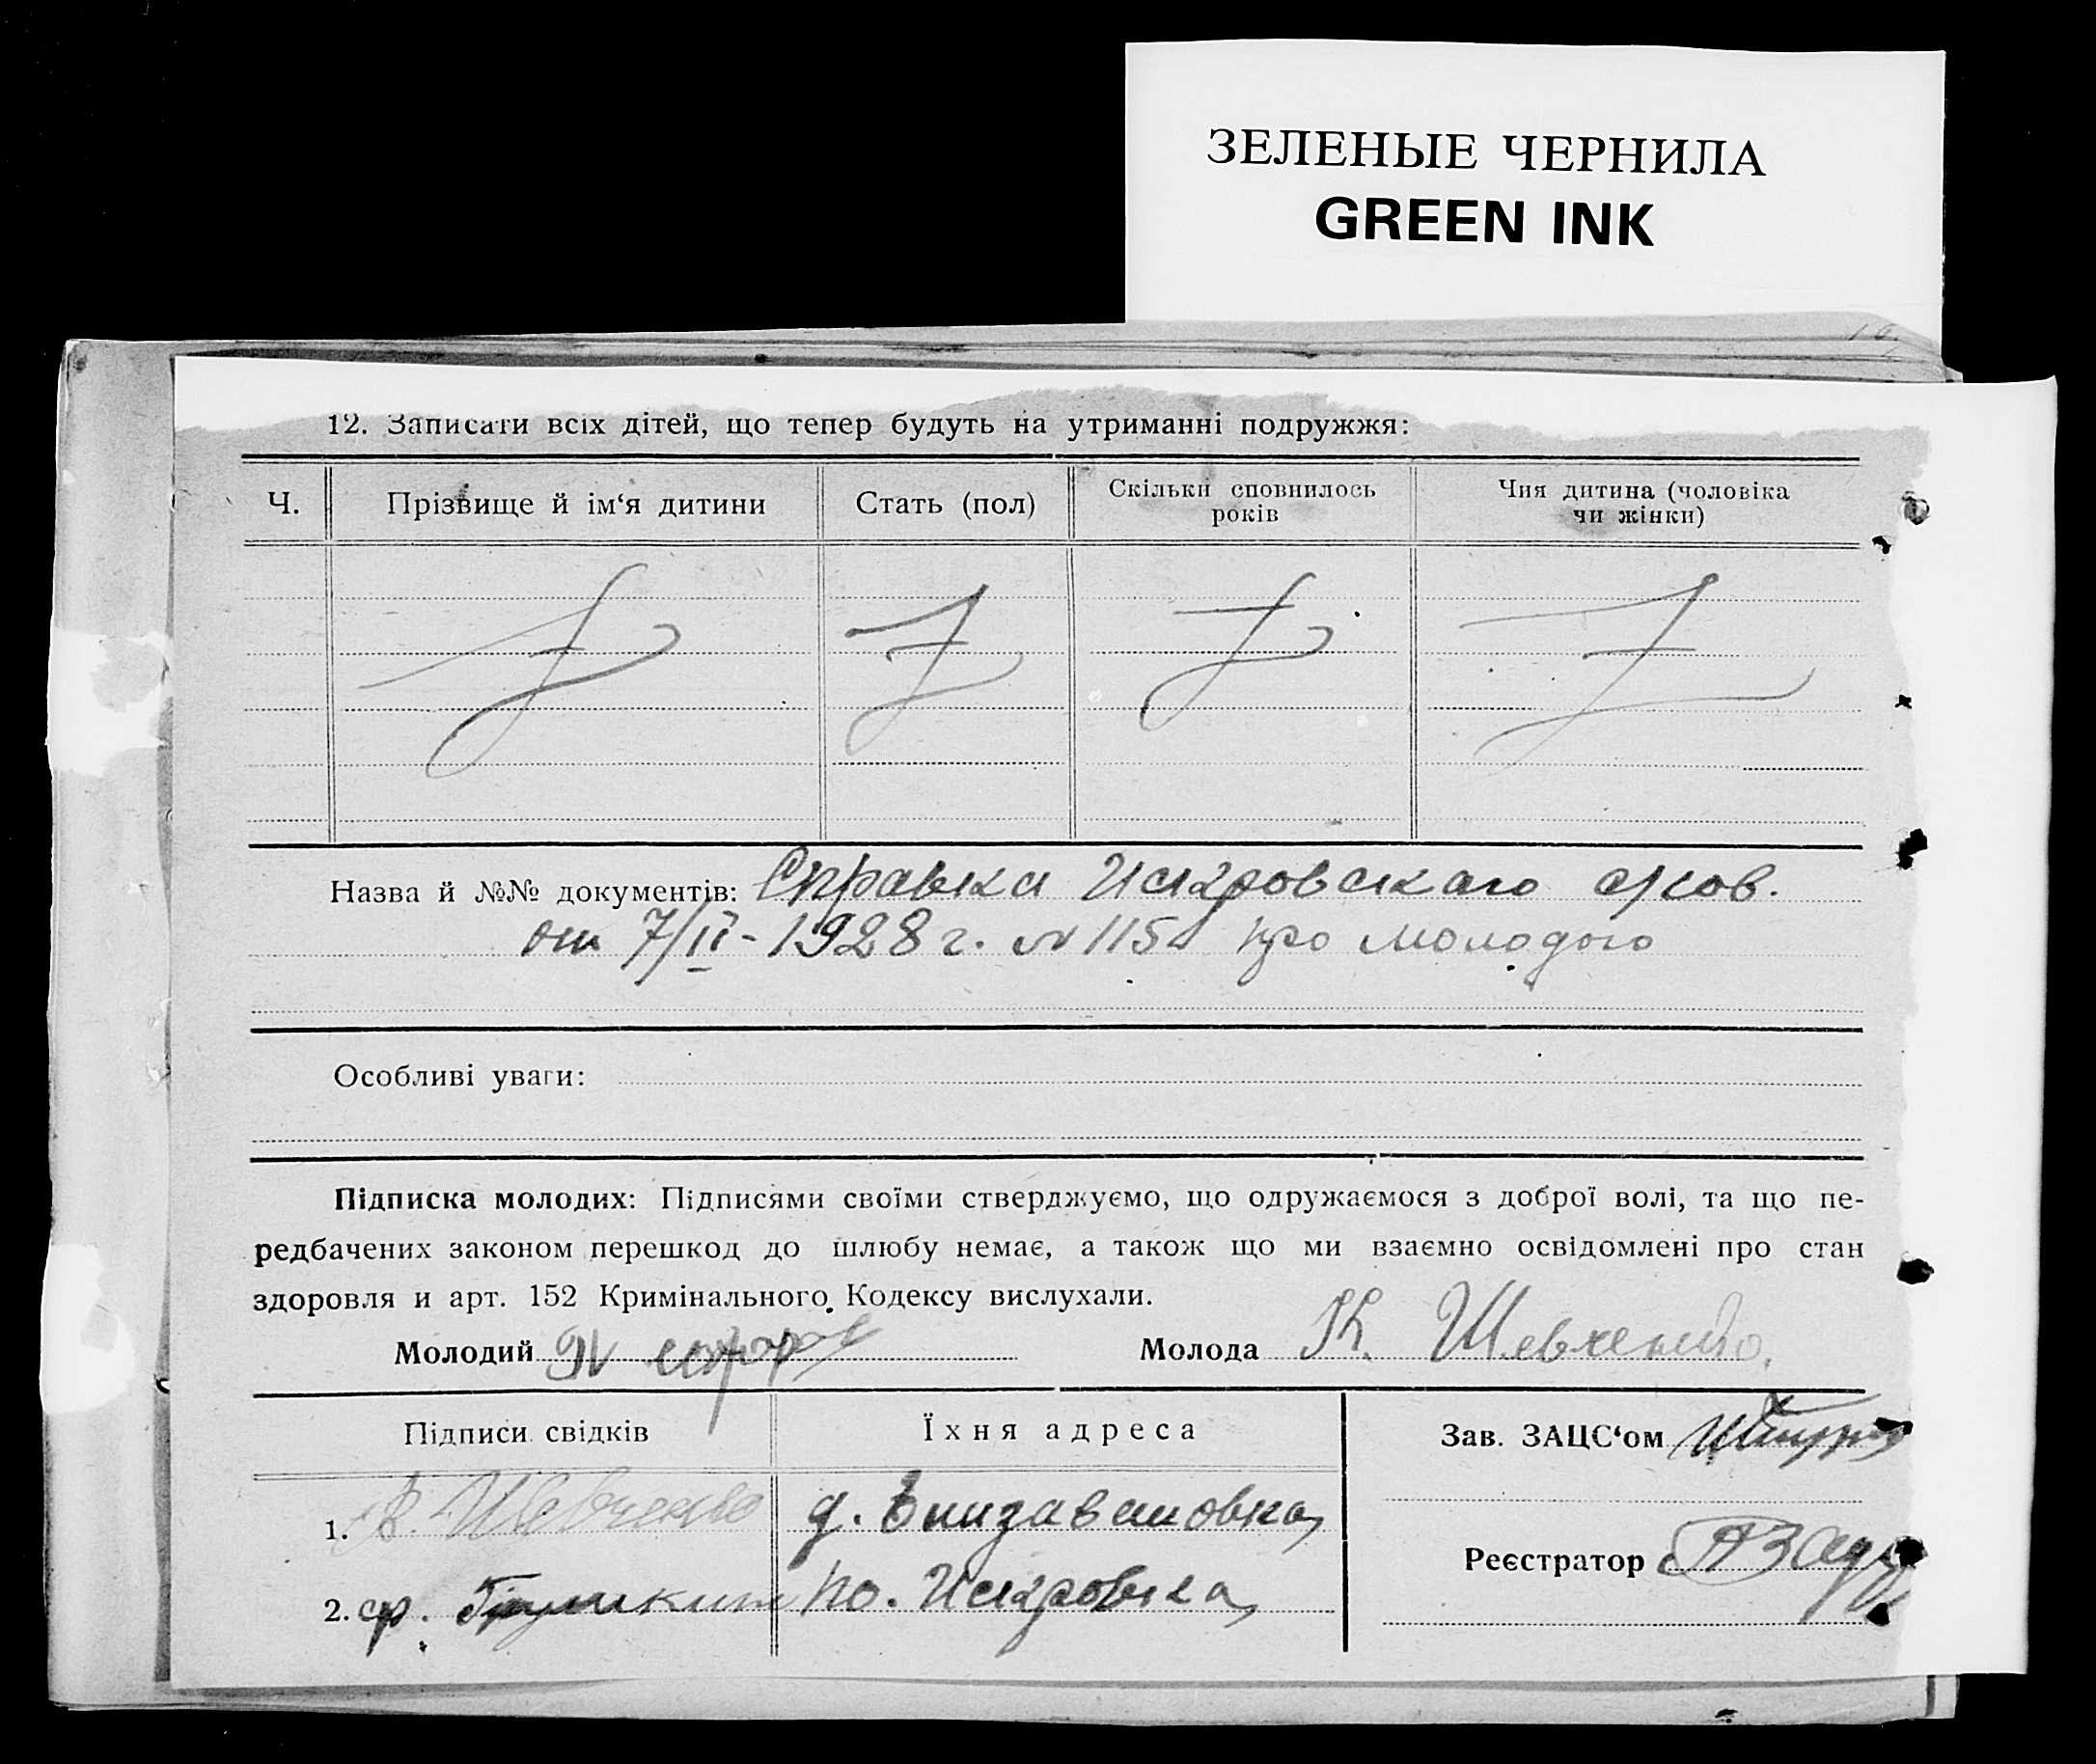 ЗЕЛЕНЫЕ ЧЕРНИЛА
GREEN INK
12. Записати всіх дітей, що тепер будуть на утриманні подружжя:
Ч. Прізвище й ім‘я дитини Стать (пол) Скільки сповнилось років Чия дитина (чоловіка чи жінки)
Назва й №№ документів: Справка Искровскаго с/сов.
от 7/II-1928 г. № 115 про молодого
Особливі уваги:
Підписка молодих: Підписями своїми стверджуємо, що одружаємося з доброї волі, та що пе-
редбачених законом перешкод до шлюбу немає, а також що ми взаємно освідомлені про стан
здоровля и арт. 152 Кримінального Кодексу вислухали.
Молодий Молода К. Шевченко.
Підписи свідків Їхня адреса Зав. ЗАЦС‘ом
1. Шевченко д. Елизаветовка,
Реєстратор
2. по. Искровка,